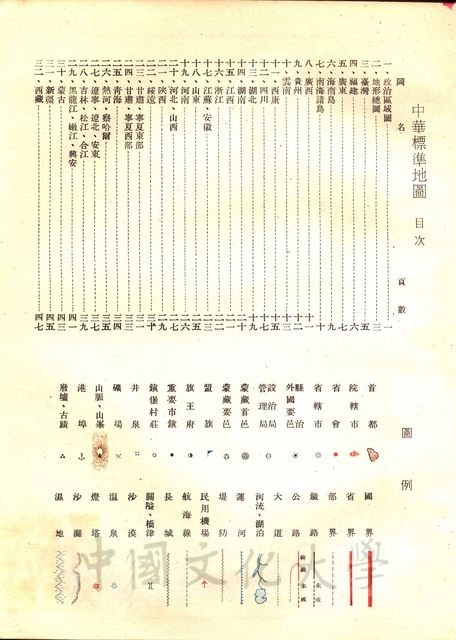 中華標準地圖 目次
圖名 頁數
一、政治區域圖 一
二、地形總圖 三
三、臺灣
四、福建
五、廣東
六、海南島
七、南海諸島
八、廣西
九、貴州
十、雲南
十一、西康
十二、四川
十三、湖北
十四、湖南
十五、江西
十六、浙江
十七、江蘇、安徽
十八、山東
十九、河南
二十、河北、山西
二一、陝西
二二、綏遠
二三、甘肅、寧夏東部
二四、甘肅、寧夏西部
二五、青海
二六、熱河、察哈爾
二七、遼寧、遼北、安東 三七
二八、吉林、松江、合江 三九
二九、黑龍江、嫩江、興安 四一
三十、蒙古 四三
三一、新疆 四五
三二、西藏 四七
圖例
首都
院轄市
省會
省轄市
縣治
外國要邑
設治局
管理局
蒙藏首邑
蒙藏要邑
盟旗
旗王府
重要市鎮
鎮堡村莊
井泉
礦場
山脈、山峯
港埠
廢墟、古蹟
國界
省界
部界
鐵路
未成
公路
幹線 未成
大道
河流、湖泊
運河
堤防
民用機場
航海線
長城
關隘、橋津
沙漠
溫泉
燈塔
沙灘
濕地
中國文化大學